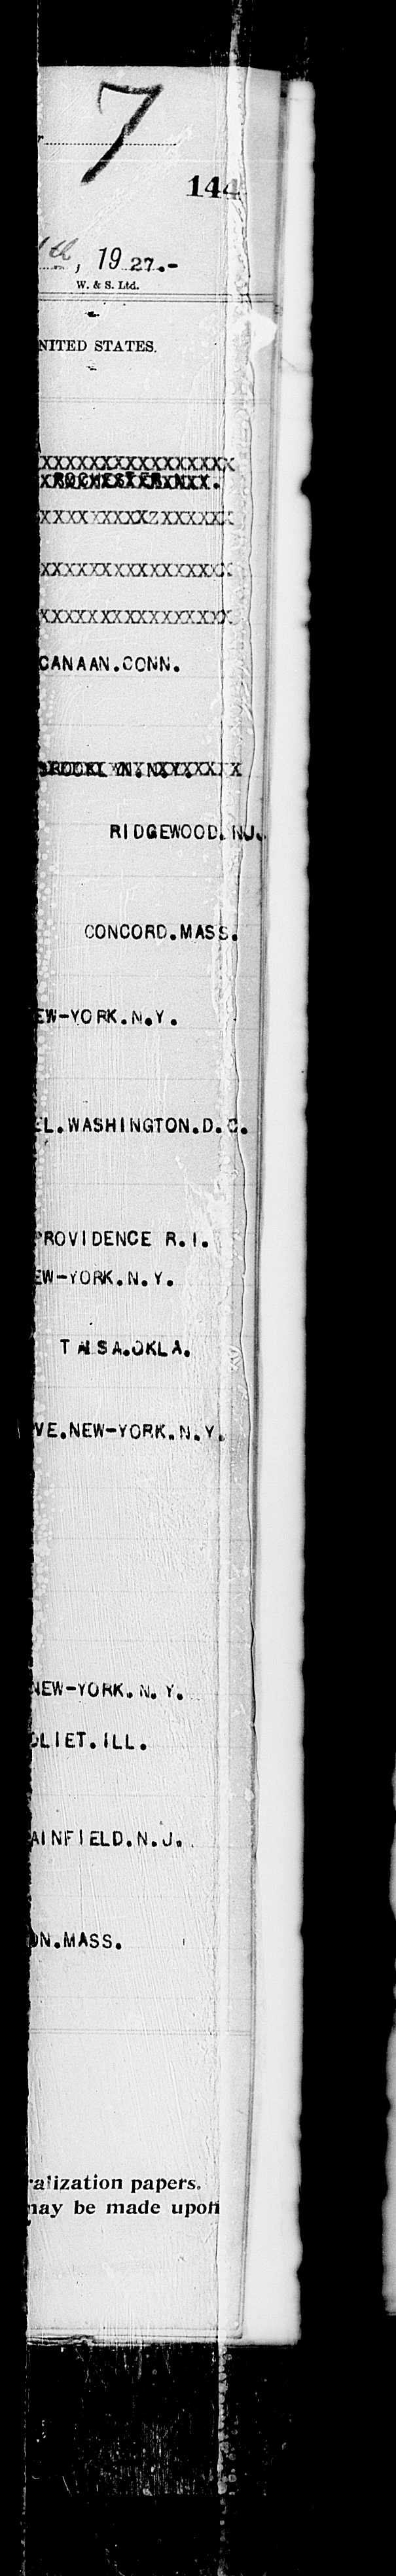 7
144
, 19 27.-
W. & S. Ltd.
NITED STATES.
XXXXXXXXXXXXXXXXXX
ROCHESTER.N.
XXXXXXXXXXZXXXXXXX
XXXXXXXXXXXXXXXXXX
XXXXXXXXXXXXXXXXXX
CANAAN.CONN.
BROOKLYN.N.Y.
RIDGEWOOD.NJ.
CONCORD.MASS.
EW-YORK.N.Y.
EL.WASHINGTON.D.C.
PROVIDENCE R.I.
EW-YORK.N.Y.
.OKLA.
VE.NEW-YORK.N.Y.
NEW-YORK.N.Y.
OLIET.ILL.
AINFIELD.N.J.
ON.MASS.
ralization papers.
may be made upon